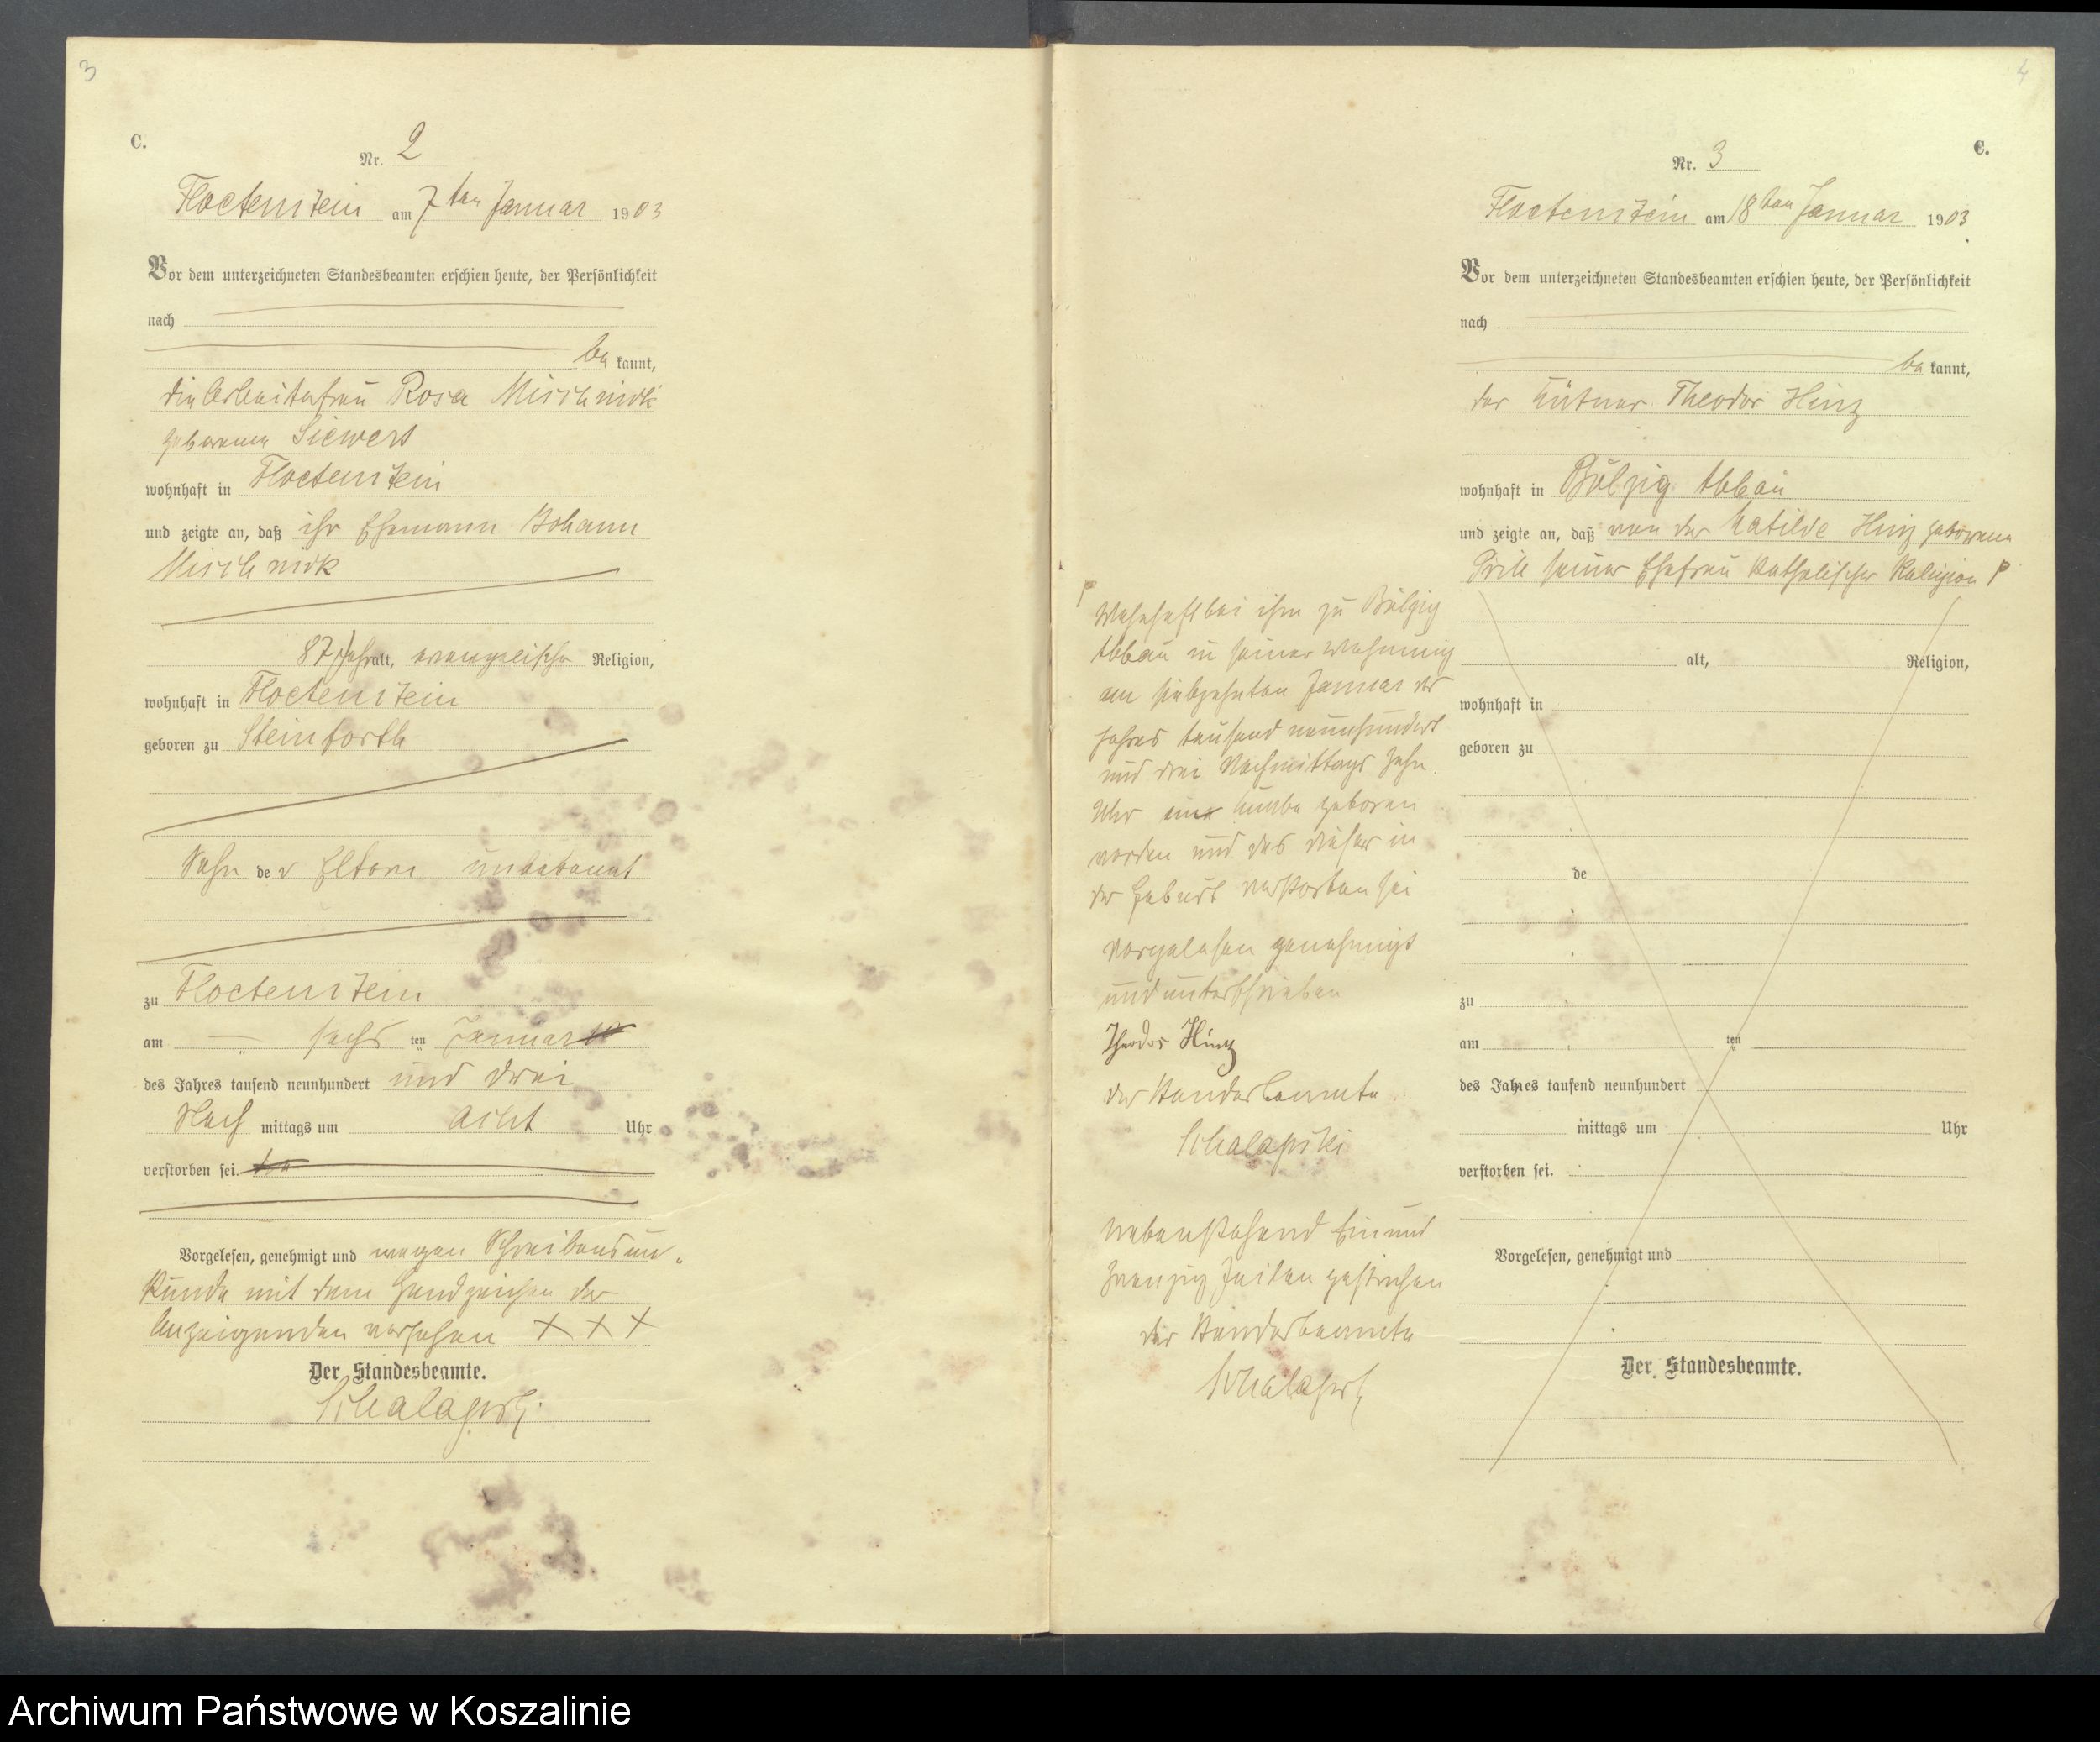 3
C.
Nr. 2
Floetenstein am 7ten Januar 1903
Vor dem unterzeichneten Standesbeamten erschien heute, der Persönlichkeit
nach
be kannt,
die Arbeiterfrau Rosa Mischnick
geborene Siewert
wohnhaft in Floetenstein
und zeigte an, daß ihr Ehemann Johann
Mischnick
87 Jahr alt, evangelischer Religion,
wohnhaft in Floetenstein
geboren zu Steinforth
Sohn der Eltern unbekannt
zu Floetenstein
am sechs ten Januar
des Jahres tausend neunhundert und drei
Nach mittags um acht Uhr
verstorben sei.
Vorgelesen, genehmigt und wegen Schreibensun-
kunde mit dem Handzeichen der
Anzeigenden versehen + + +
Der Standesbeamte.
4
C.
Nr. 3
Floetenstein am 18ten Januar 1903
Vor dem unterzeichneten Standesbeamten erschien heute, der Persönlichkeit
nach
be kannt,
der Theodor Hinz
wohnhaft in Bölzig Abbau
und zeigte an, daß von der Matilde Hinz geborene
seiner Ehefrau katholischer Religion
wohnhaft bei ihm zu Bölzig
Abbau in seiner Wohnung
am siebzehnten Januar des
Jahres tausend neunhundert
und drei Nachmittags zehn
Uhr ein Knabe geboren
worden und das dieser in
der Geburt verstorben sei
Vorgelesen genehmigt
und unterschrieben
Theodor Hinz
der Standesbeamte
Nebenstehend Ein und
zwanzig Zeilen gestrichen
der Standesbeamte
alt, Religion,
wohnhaft in
geboren zu
de
zu
am ten
des Jahres tausend neunhundert
mittags um Uhr
verstorben sei.
Vorgelesen, genehmigt und
Der Standesbeamte.
Archiwum Państwowe w Koszalinie